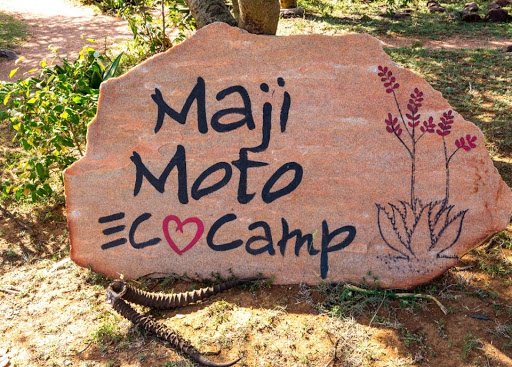 Maji
Moto
EC♥Camp